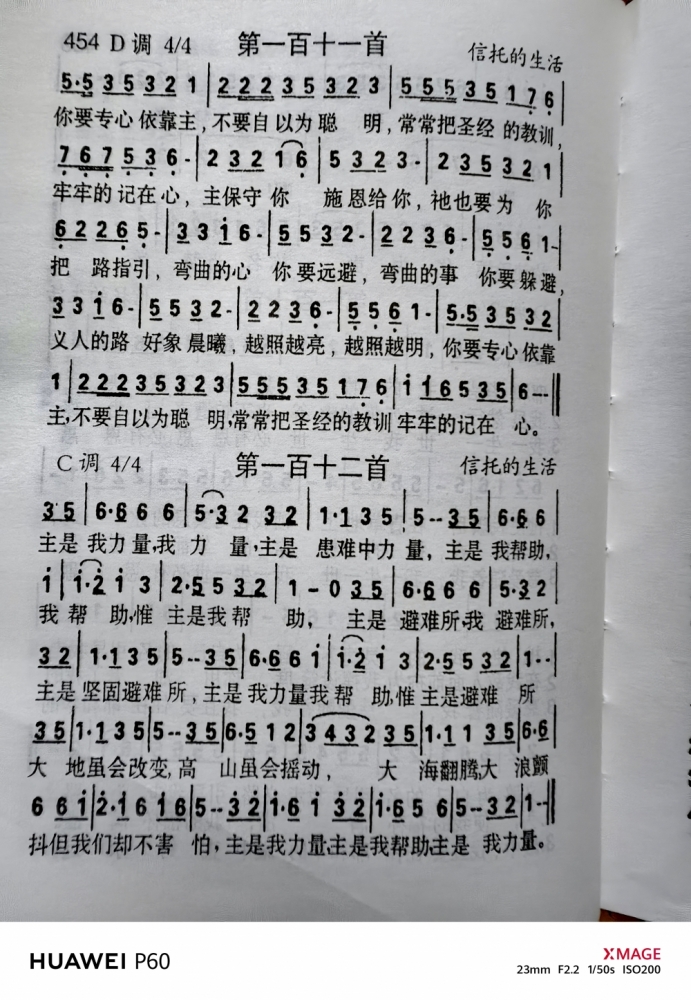 454 D调 4/4 第一百十一首 信托的生活
5·5 3 5 3 2 1 | 2 2 2 3 5 3 2 3 | 5 5 5 3 5 1 7 6 |
你要专心依靠主,不要自以为聪 明,常常把圣经的教训,
7 6 7 5 3 6 - | 2 3 2 1 6 | 5 3 2 3 - | 2 3 5 3 2 1
牢牢的记在心,主保守你 施恩给你,祂也要为 你
6 2 2 6 5 - | 3 3 i 6 - | 5 5 3 2 - | 2 2 3 6 - | 5 5 6 1 - |
把 路指引,弯曲的心 你要远避,弯曲的事 你要躲避,
3 3 i 6 - | 5 5 3 2 - | 2 2 3 6 - | 5 5 6 1 - | 5·5 3 5 3 2
义人的路 好象晨曦,越照越亮,越照越明,你要专心依靠
1 | 2 2 2 3 5 3 2 3 | 5 5 5 3 5 1 7 6 | i i 6 5 3 5 | 6 - - - ‖
主,不要自以为聪 明,常常把圣经的教训牢牢的记在 心。
C调 4/4 第一百十二首 信托的生活
3 5 | 6·6 6 6 | 5·3 2 3 2 | 1·1 3 5 | 5 - - 3 5 | 6·6 6
主是我力量,我 力 量,主是 患难中力量,主是我帮助,
i | i·2 i 3 | 2·5 5 3 2 | 1 - 0 3 5 | 6·6 6 6 | 5·3 2
我 帮 助,惟 主是我帮 助, 主是 避难所,我 避难所,
3 2 | 1·1 3 5 | 5 - - 3 5 | 6·6 6 i | i·2 i 3 | 2·5 5 3 2 | 1 - -
主是 坚固避难所,主是我力量我帮 助,惟主是避难 所
3 5 | 1·1 3 5 | 5 - - 3 5 | 6·5 1 2 | 3 4 3 2 3 5 | 1·1 1 3 5 | 6·6
大 地虽会改变,高 山虽会摇动, 大 海翻腾,大 浪颤
6 6 i | 2·i 6 i 6 | 5 - - 3 2 | i·6 i 3 2 | i·6 5 6 | 5 - - 3 2 | 1 - - ‖
抖但我们却不害 怕,主是我力量,主是我帮助,主是 我力量。
HUAWEI P60
XMAGE
23mm F2.2 1/50s ISO200